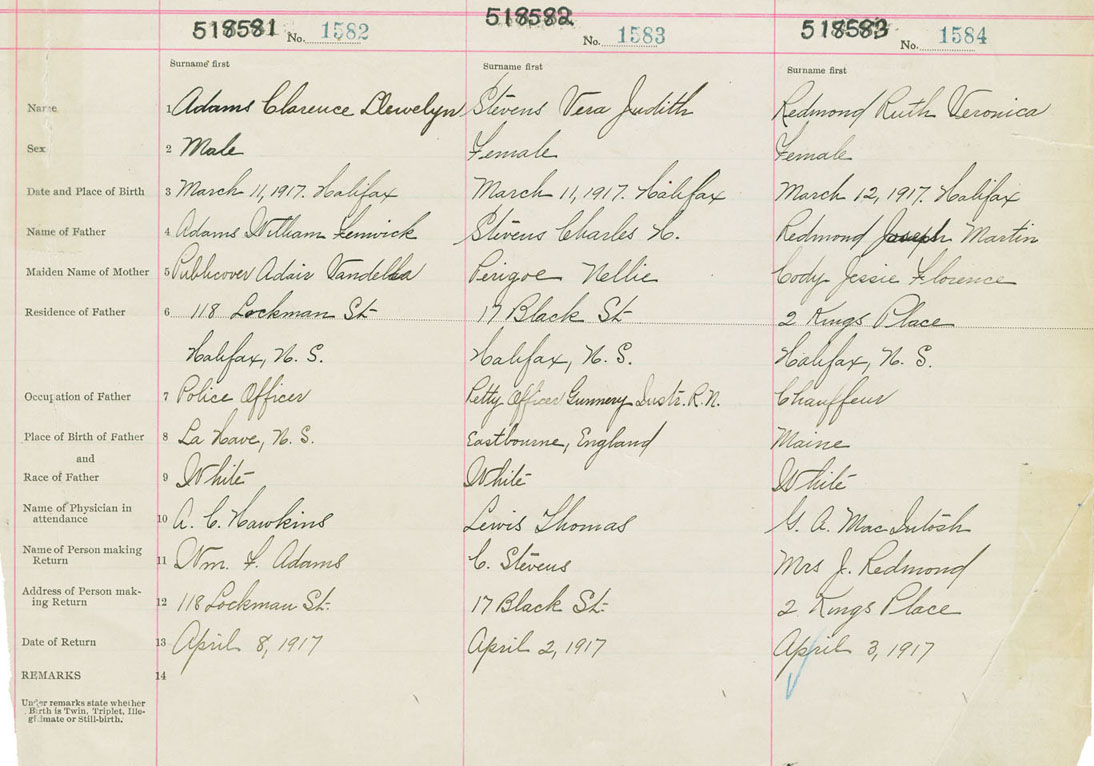 518581 No. 1582 518582 No. 1583 518583 No. 1584
Surname first Surname first Surname first
Name 1 Adams Clarence Llewelyn Stevens Vera Judith Redmond Ruth Veronica
Sex 2 Male Female Female
Date and Place of Birth 3 March 11, 1917. Halifax March 11, 1917. Halifax March 12, 1917. Halifax
Name of Father 4 Adams William Fenwick Stevens Charles H. Redmond Joseph Martin
Maiden Name of Mother 5 Publicover Adair Vandella Perigoe Nellie Cody Jessie Florence
Residence of Father 6 118 Lockman St. 17 Black St. 2 Kings Place
Halifax, N. S. Halifax, N. S. Halifax, N. S.
Occupation of Father 7 Police Officer Petty Officer Gunnery Instr. R.N. Chauffeur
Place of Birth of Father 8 La Have, N. S. Eastbourne, England Maine
and
Race of Father 9 White White White
Name of Physician in
attendance 10 A. C. Hawkins Lewis Thomas G. A. MacIntosh
Name of Person making
Return 11 Wm. F. Adams C. Stevens Mrs J. Redmond
Address of Person mak-
ing Return 12 118 Lockman St. 17 Black St. 2 Kings Place
Date of Return 13 April 8, 1917 April 2, 1917 April 3, 1917
REMARKS 14
Under remarks state whether
Birth is Twin, Triplet, Ille-
gitimate or Still-birth.